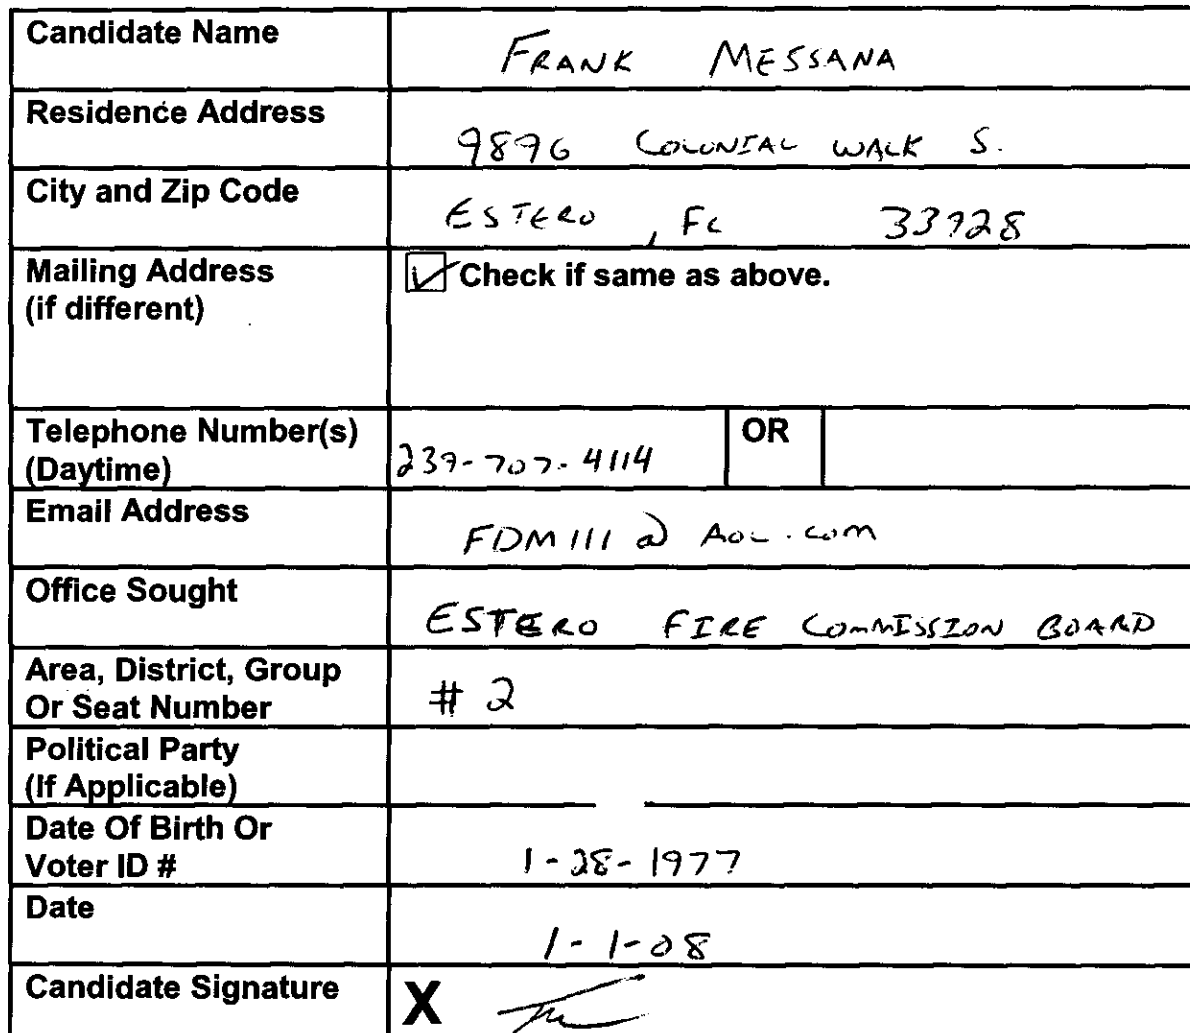 Candidate Name FRANK MESSANA
Residence Address 9896 COLONIAL WALK S.
City and Zip Code ESTERO, FL 33928
Mailing Address ☑ Check if same as above.
(if different)
Telephone Number(s) OR
(Daytime) 239-707-4114
Email Address FDM111@AOL.COM
Office Sought ESTERO FIRE COMMISSION BOARD
Area, District, Group # 2
Or Seat Number
Political Party
(If Applicable)
Date Of Birth Or
Voter ID # 1-28-1977
Date 1-1-08
Candidate Signature X